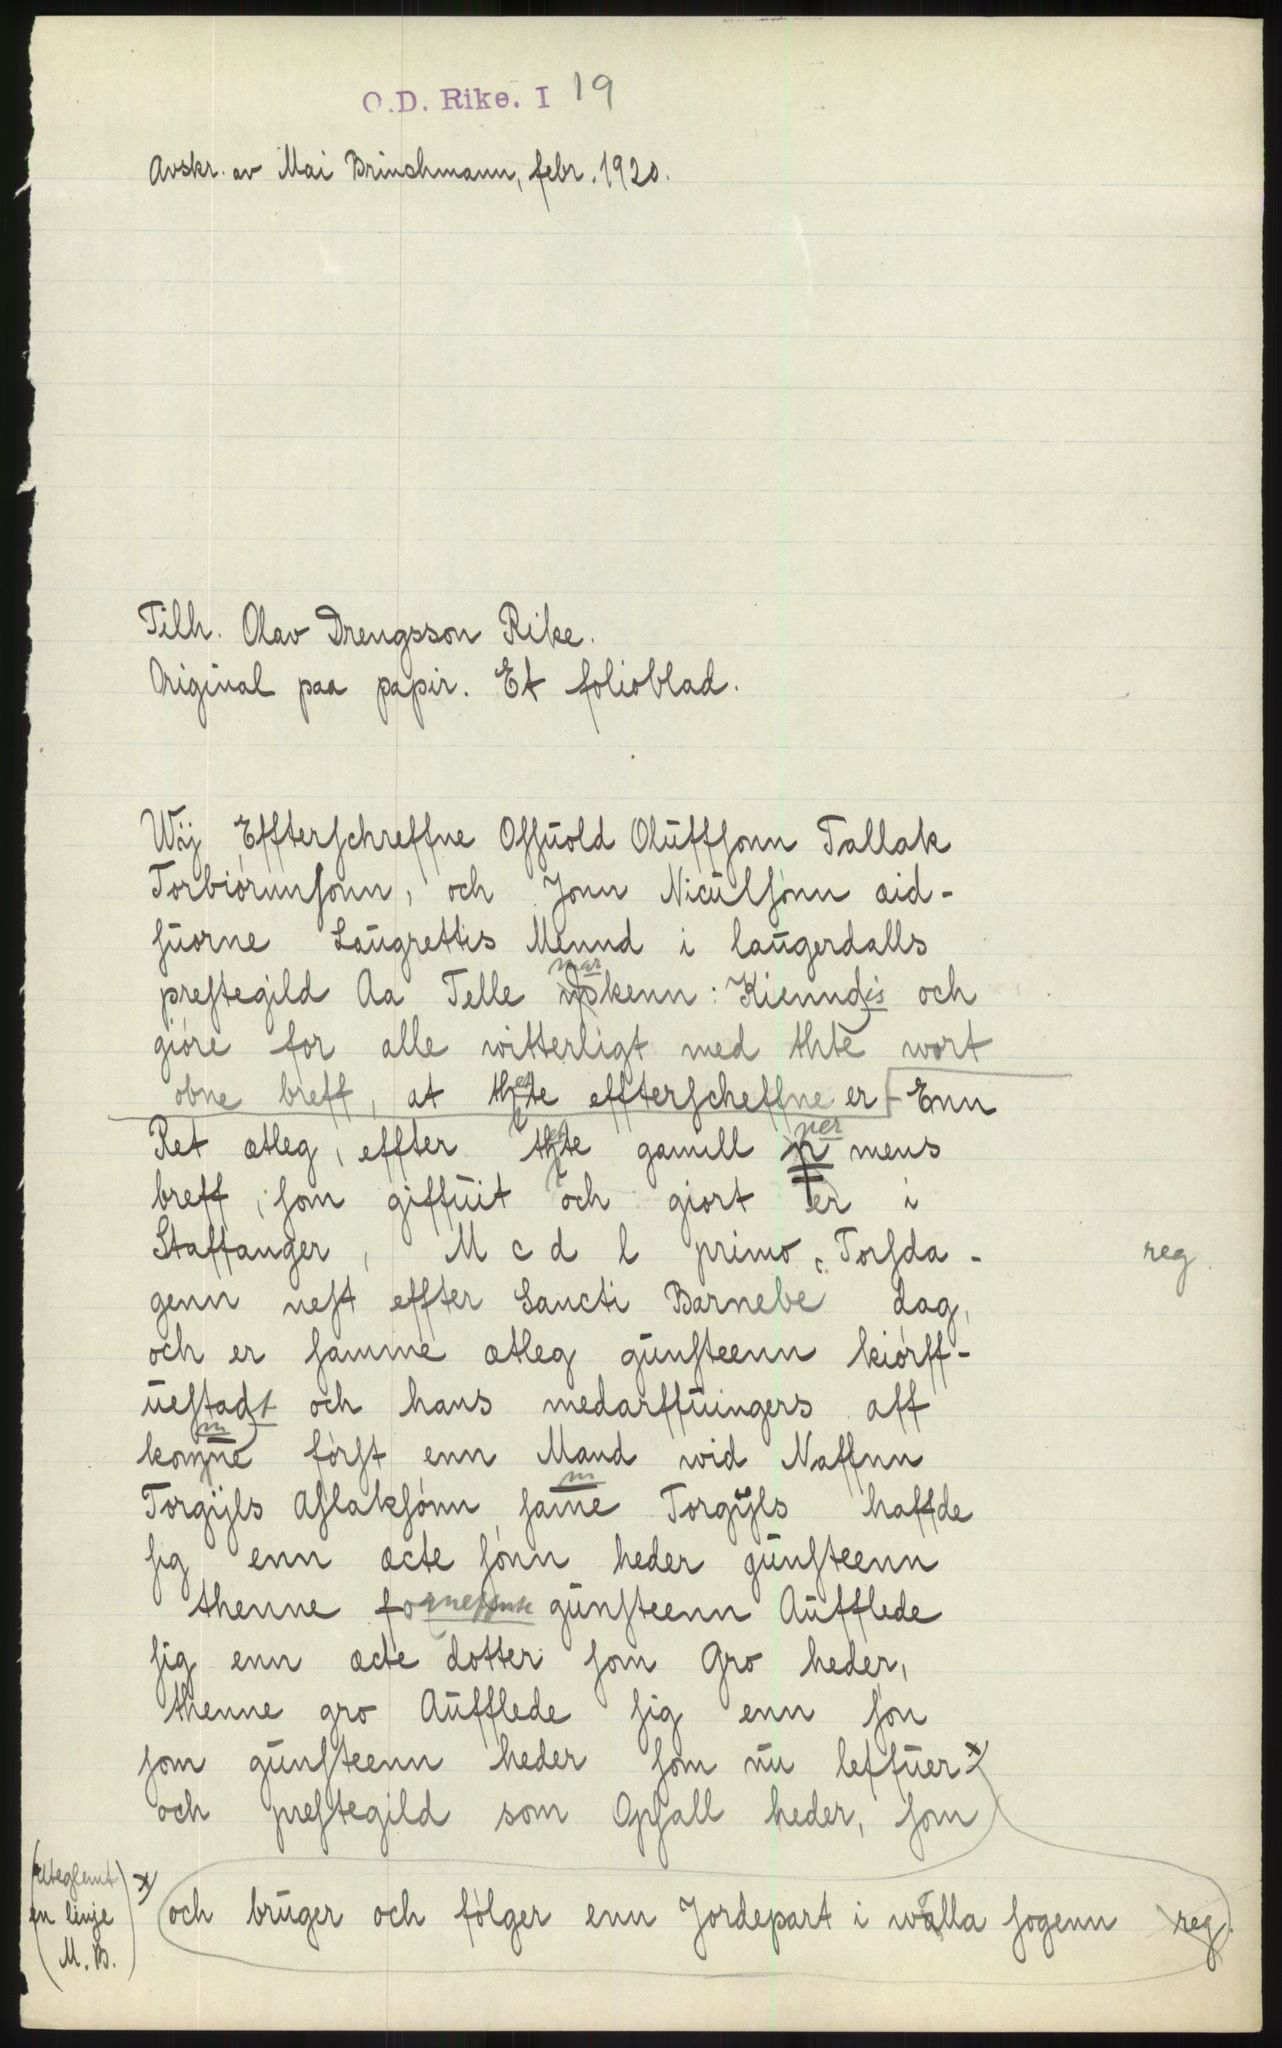 O.D. Rike. I 19
Avskr. av Mai Brinchmann, febr. 1920.
Tilh. Olav Drengsson Rike.
Original paa papir. Et folioblad.
Wij Effterschreffne Ossuold Oluffsonn Tallak
Torbiørnnsonn, och Jonn Niculsønn æid-
suorne Laugrettis Mennd i laugerdalls
prestegild Aa Telle marskenn: Kienndis och
giøre for alle witterligt med thte wort
obne breff, at thette effterscheffne er Enn
Ret ætleg, effter thette gamill per mens
breff, som giffuit och giort er i
Staffanger, M c d l primo, Torsda-
reg.
genn nest effter Sancti Barnebe dag,
och er samme ætleg gunsteenn kiørff-
uestadt och hans medarffuingers aff
komne først enn Mand wid Naffnn
Torgijls Aslaksønn, same Torgijls haffde
sig enn æcte sønn heder gunsteenn
thenne forneffnte gunsteenn Aufflede
sig enn æcte dotter som Gro heder,
thenne gro Aufflede sig enn søn
som gunsteenn heder som nu leffuer x)
och prestegild som Opsall heder, som
(Uteglemt
en linje
M.B.)
x) och bruger och følger enn Jordepart i walla sogenn reg.